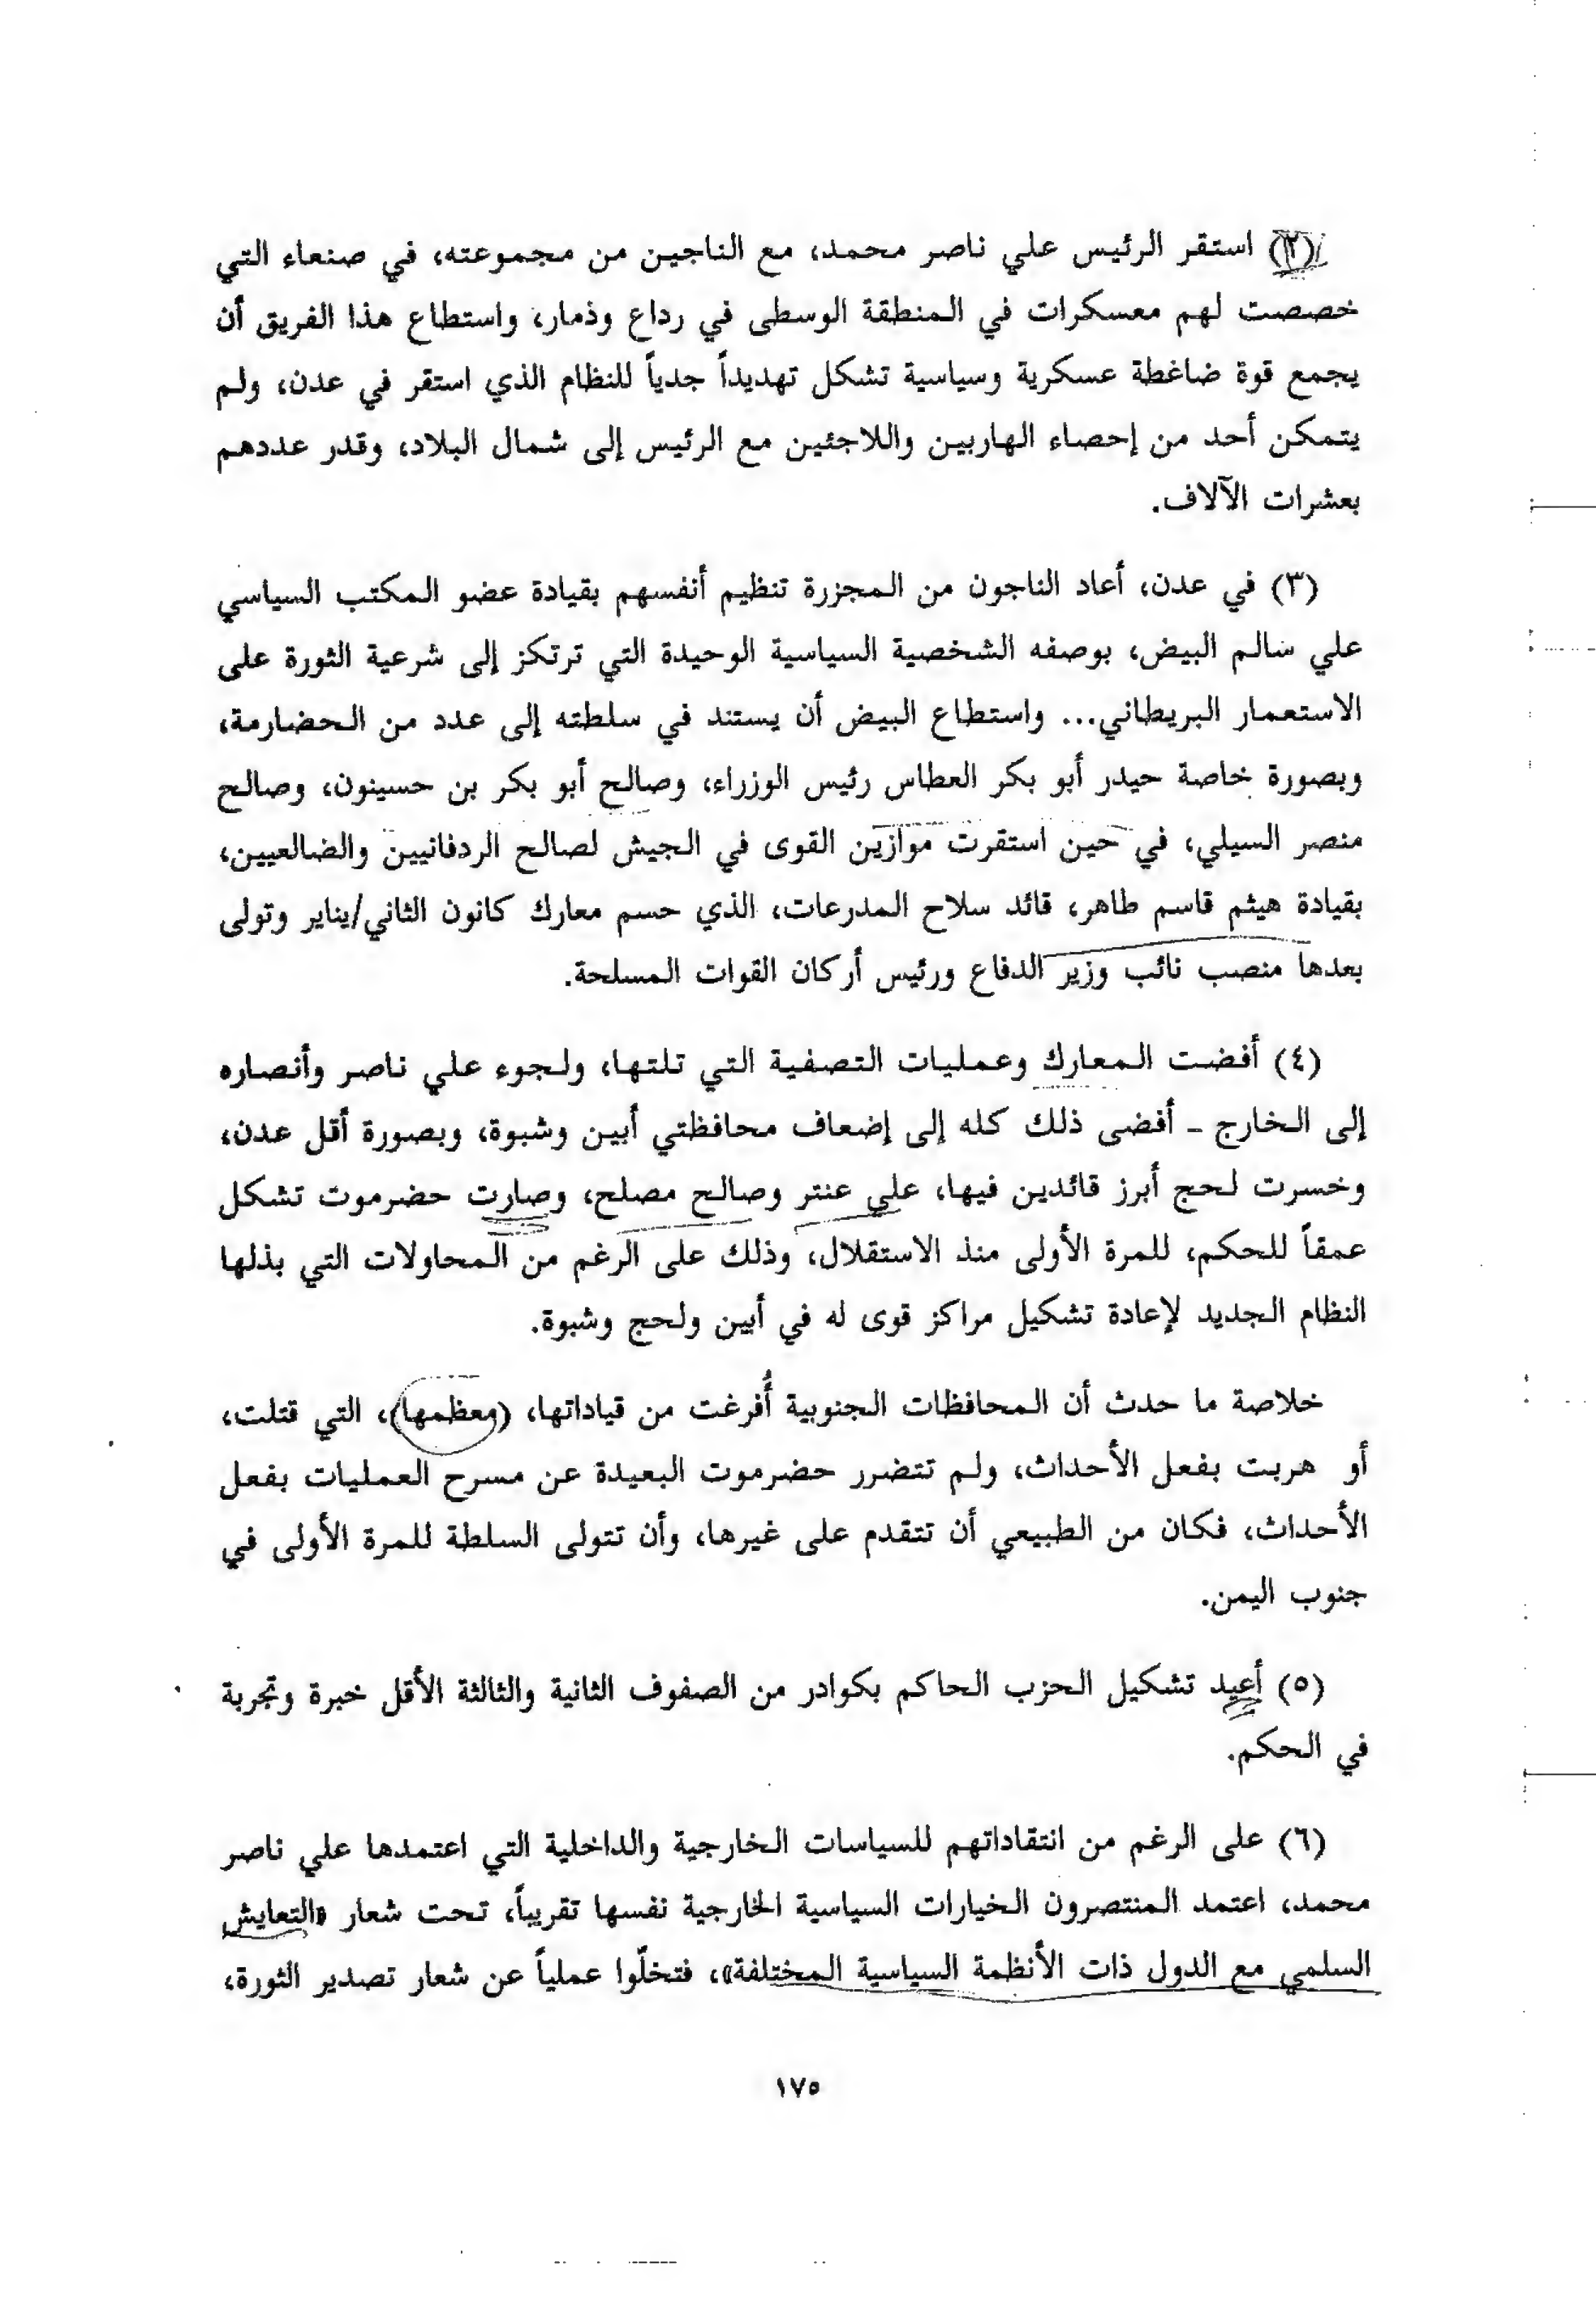 (٢) استقر الرئيس علي ناصر محمد، مع الناجين من مجموعته، في صنعاء التي
خصصت لهم معسكرات في المنطقة الوسطى في رداع وذمار، واستطاع هذا الفريق أن
يجمع قوة ضاغطة عسكرية وسياسية تشكل تهديداً جدياً للنظام الذي استقر في عدن، ولم
يتمكن أحد من إحصاء الهاربين واللاجئين مع الرئيس إلى شمال البلاد، وقدر عددهم
بعشرات الآلاف.
(٣) في عدن، أعاد الناجون من المجزرة تنظيم أنفسهم بقيادة عضو المكتب السياسي
علي سالم البيض، بوصفه الشخصية السياسية الوحيدة التي ترتكز إلى شرعية الثورة على
الاستعمار البريطاني... واستطاع البيض أن يستند في سلطته إلى عدد من الحضارمة،
وبصورة خاصة حيدر أبو بكر العطاس رئيس الوزراء، وصالح أبو بكر بن حسينون، وصالح
منصر السيلي، في حين استقرت موازين القوى في الجيش لصالح الردفانيين والضالعيين،
بقيادة هيثم قاسم طاهر، قائد سلاح المدرعات، الذي حسم معارك كانون الثاني/يناير وتولى
بعدها منصب نائب وزير الدفاع ورئيس أركان القوات المسلحة.
(٤) أفضت المعارك وعمليات التصفية التي تلتها، ولجوء علي ناصر وأنصاره
إلى الخارج - أفضى ذلك كله إلى إضعاف محافظتي أبين وشبوة، وبصورة أقل عدن،
وخسرت لحج أبرز قائدين فيها، علي عنتر وصالح مصلح، وصارت حضرموت تشكل
عمقاً للحكم، للمرة الأولى منذ الاستقلال، وذلك على الرغم من المحاولات التي بذلها
النظام الجديد لإعادة تشكيل مراكز قوى له في أبين ولحج وشبوة.
خلاصة ما حدث أن المحافظات الجنوبية أُفرغت من قياداتها، (معظمها)، التي قتلت،
أو هربت بفعل الأحداث، ولم تتضرر حضرموت البعيدة عن مسرح العمليات بفعل
الأحداث، فكان من الطبيعي أن تتقدم على غيرها، وأن تتولى السلطة للمرة الأولى في
جنوب اليمن.
(٥) أعيد تشكيل الحزب الحاكم بكوادر من الصفوف الثانية والثالثة الأقل خبرة وتجربة
في الحكم.
(٦) على الرغم من انتقاداتهم للسياسات الخارجية والداخلية التي اعتمدها علي ناصر
محمد، اعتمد المنتصرون الخيارات السياسية الخارجية نفسها تقريباً، تحت شعار «التعايش
السلمي مع الدول ذات الأنظمة السياسية المختلفة»، فتخلّوا عملياً عن شعار تصدير الثورة،
١٧٥